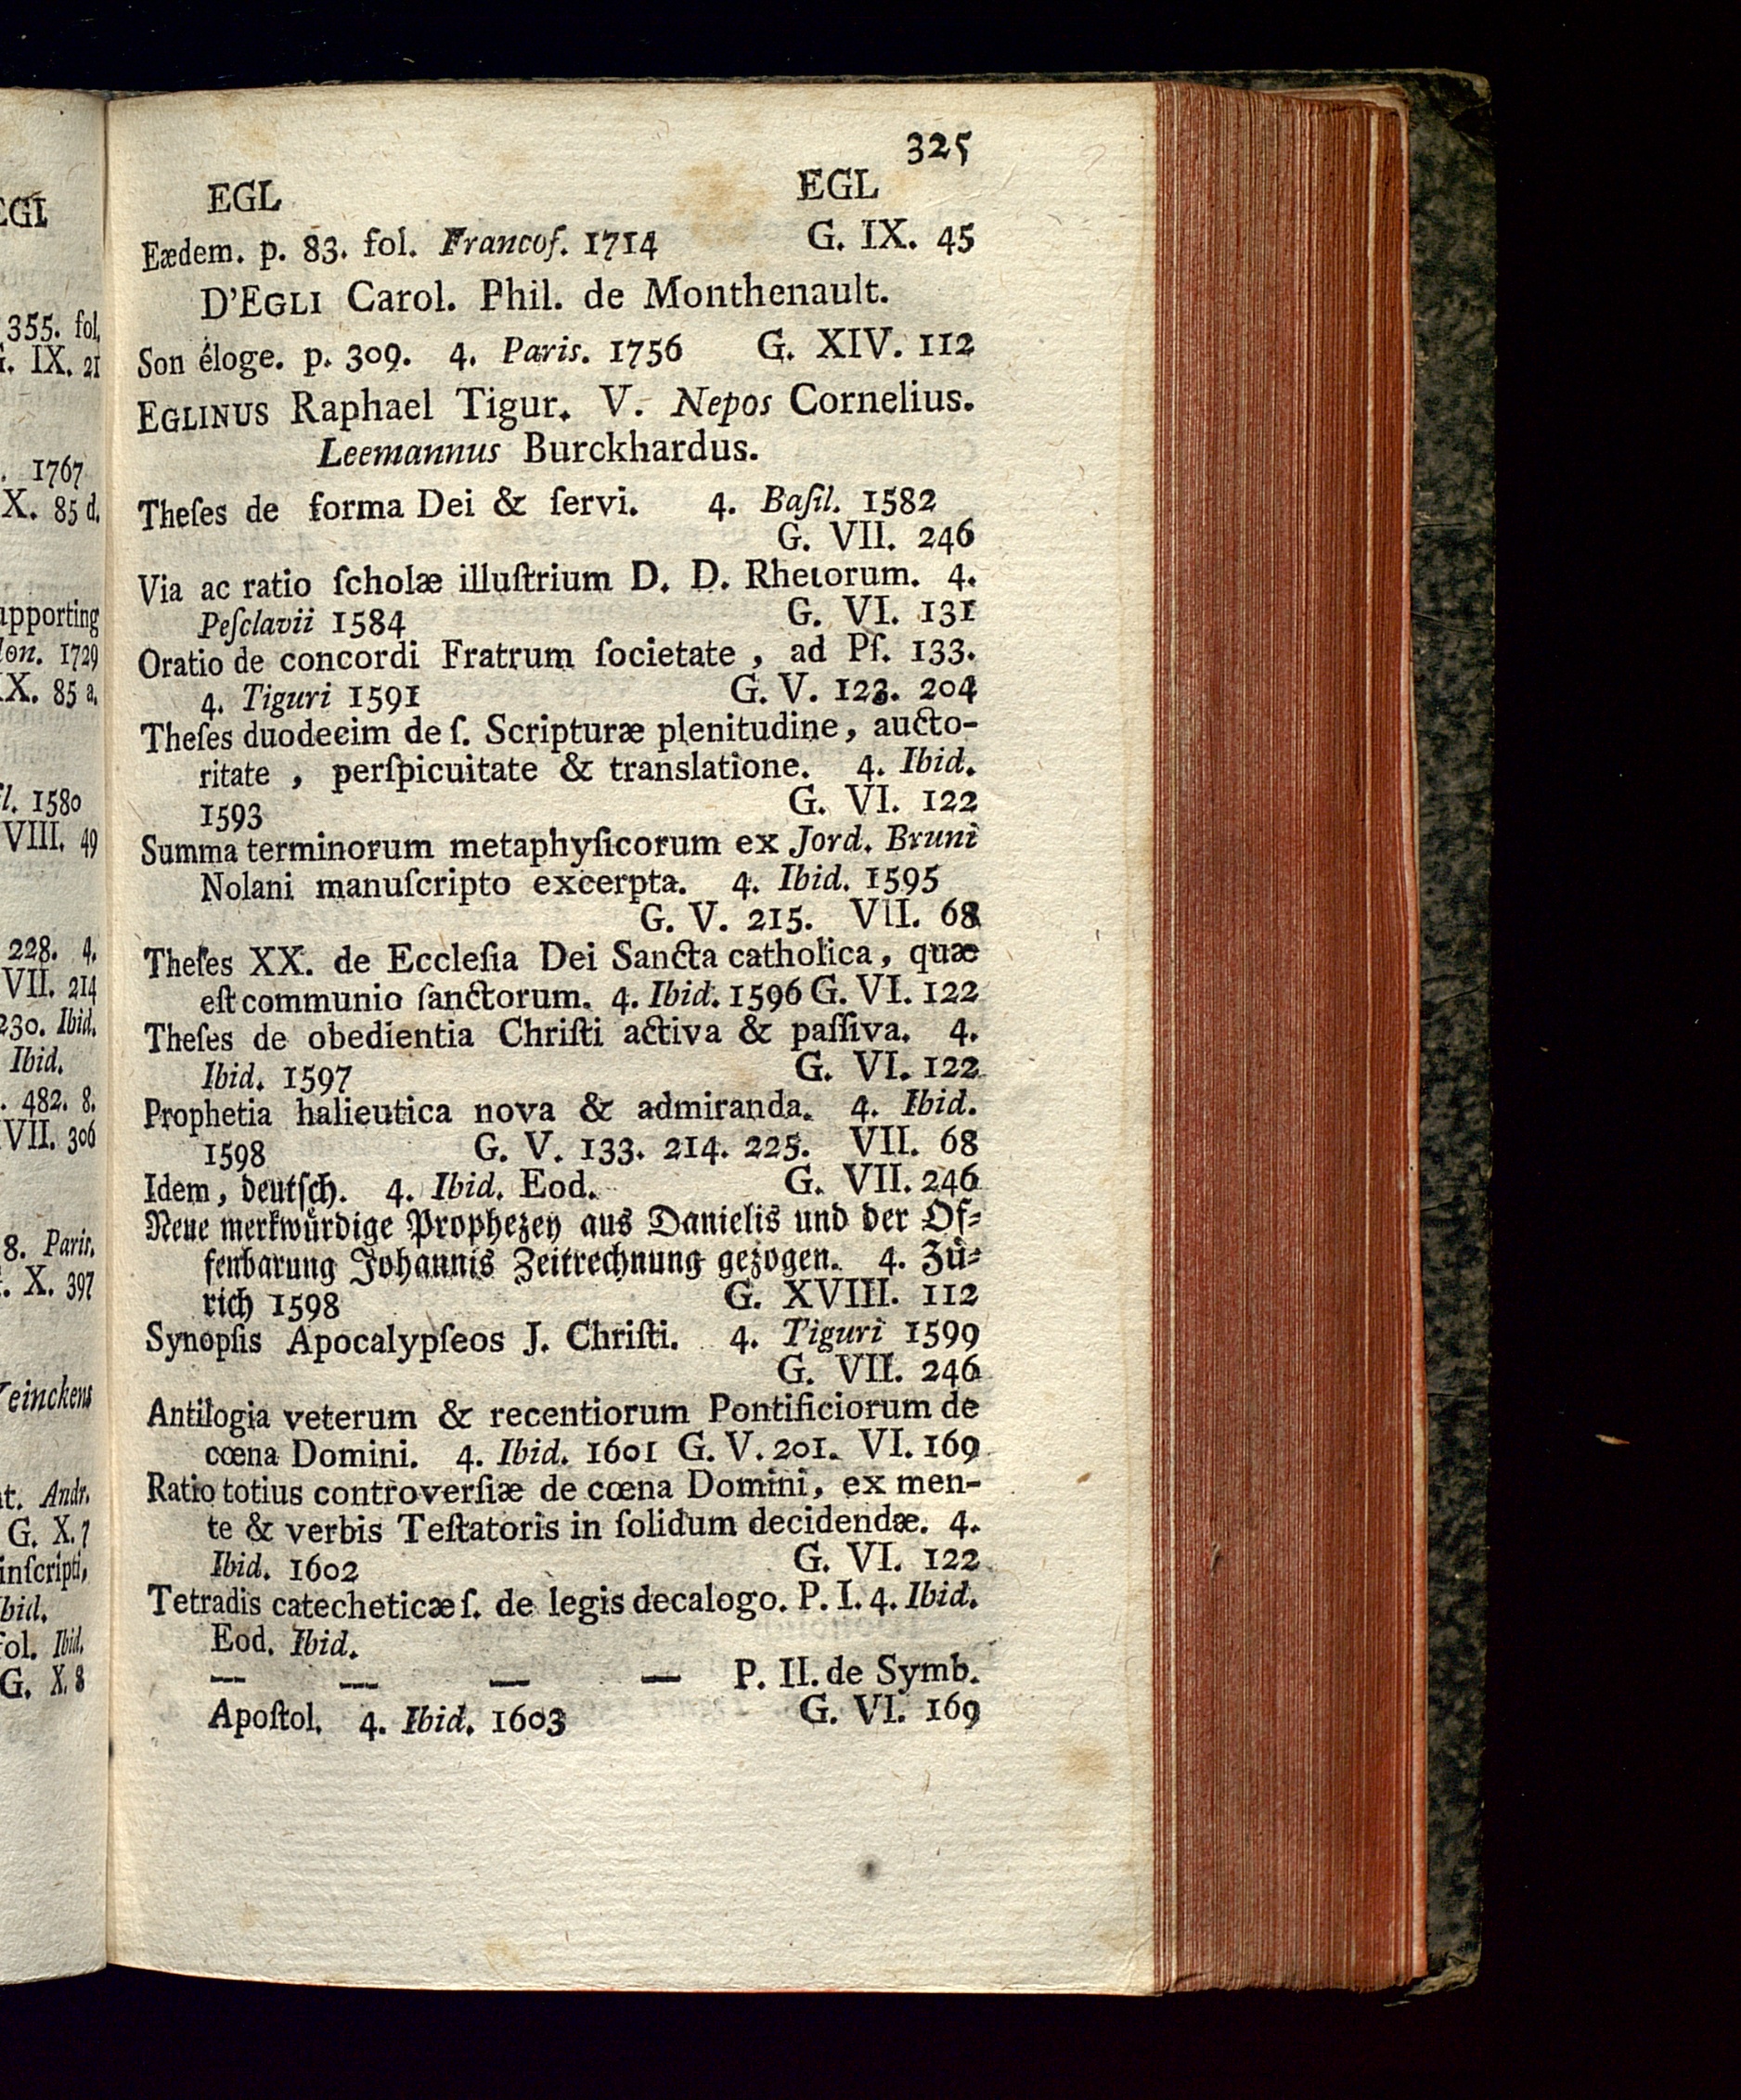 EGI
355. fol.
G. IX. 21
. 1767
X. 85 d.
upporting
lon. 1729
IX. 85 a.
1580
VIII. 49
228. 4.
VII. 214
230. Ibid.
Ibid.
. 482. 8.
VII. 306
8. Paris.
. X. 397
einckens
at. Andr.
G. X. 7
inſcripti,
Ibid.
fol. Ibid.
G. X. 8
325
EGL EGL
Eædem. p. 83. fol. Francof. 1714 G. IX. 45
D'EGLI Carol. Phil. de Monthenault.
Son éloge. p. 309. 4. Paris. 1756 G. XIV. 112
EGLINUS Raphael Tigur. V. Nepos Cornelius.
Leemannus Burckhardus.
Theſes de forma Dei & ſervi. 4. Baſil. 1582
G. VII. 246
Via ac ratio ſcholæ illuſtrium D. D. Rhetorum. 4.
Peſclavii 1584 G. VI. 131
Oratio de concordi Fratrum ſocietate, ad Pſ. 133.
4. Tiguri 1591 G. V. 123. 204
Theſes duodecim de ſ. Scripturæ plenitudine, aucto-
ritate, perſpicuitate & translatione. 4. Ibid.
1593 G. VI. 122
Summa terminorum metaphyſicorum ex Jord. Bruni
Nolani manuſcripto excerpta. 4. Ibid. 1595
G. V. 215. VII. 68
Theſes XX. de Eccleſia Dei Sancta catholica, quæ
eſt communio ſanctorum. 4. Ibid. 1596 G. VI. 122
Theſes de obedientia Chriſti activa & paſſiva. 4.
Ibid. 1597 G. VI. 122
Prophetia halieutica nova & admiranda. 4. Ibid.
1598 G. V. 133. 214. 225. VII. 68
Idem, deutſch. 4. Ibid. Eod. G. VII. 246
Neue merkwürdige Prophezey aus Danielis und der Of-
fenbarung Johannis Zeitrechnung gezogen. 4. Zü-
rich 1598 G. XVIII. 112
Synopſis Apocalypſeos J. Chriſti. 4. Tiguri 1599
G. VII. 246
Antilogia veterum & recentiorum Pontificiorum de
cœna Domini. 4. Ibid. 1601 G. V. 201. VI. 169
Ratio totius controverſiæ de cœna Domini, ex men-
te & verbis Teſtatoris in ſolidum decidendæ. 4.
Ibid. 1602 G. VI. 122
Tetradis catecheticæ ſ. de legis decalogo. P. I. 4. Ibid.
Eod. Ibid.
— — — — P. II. de Symb.
Apoſtol. 4. Ibid. 1603 G. VI. 169